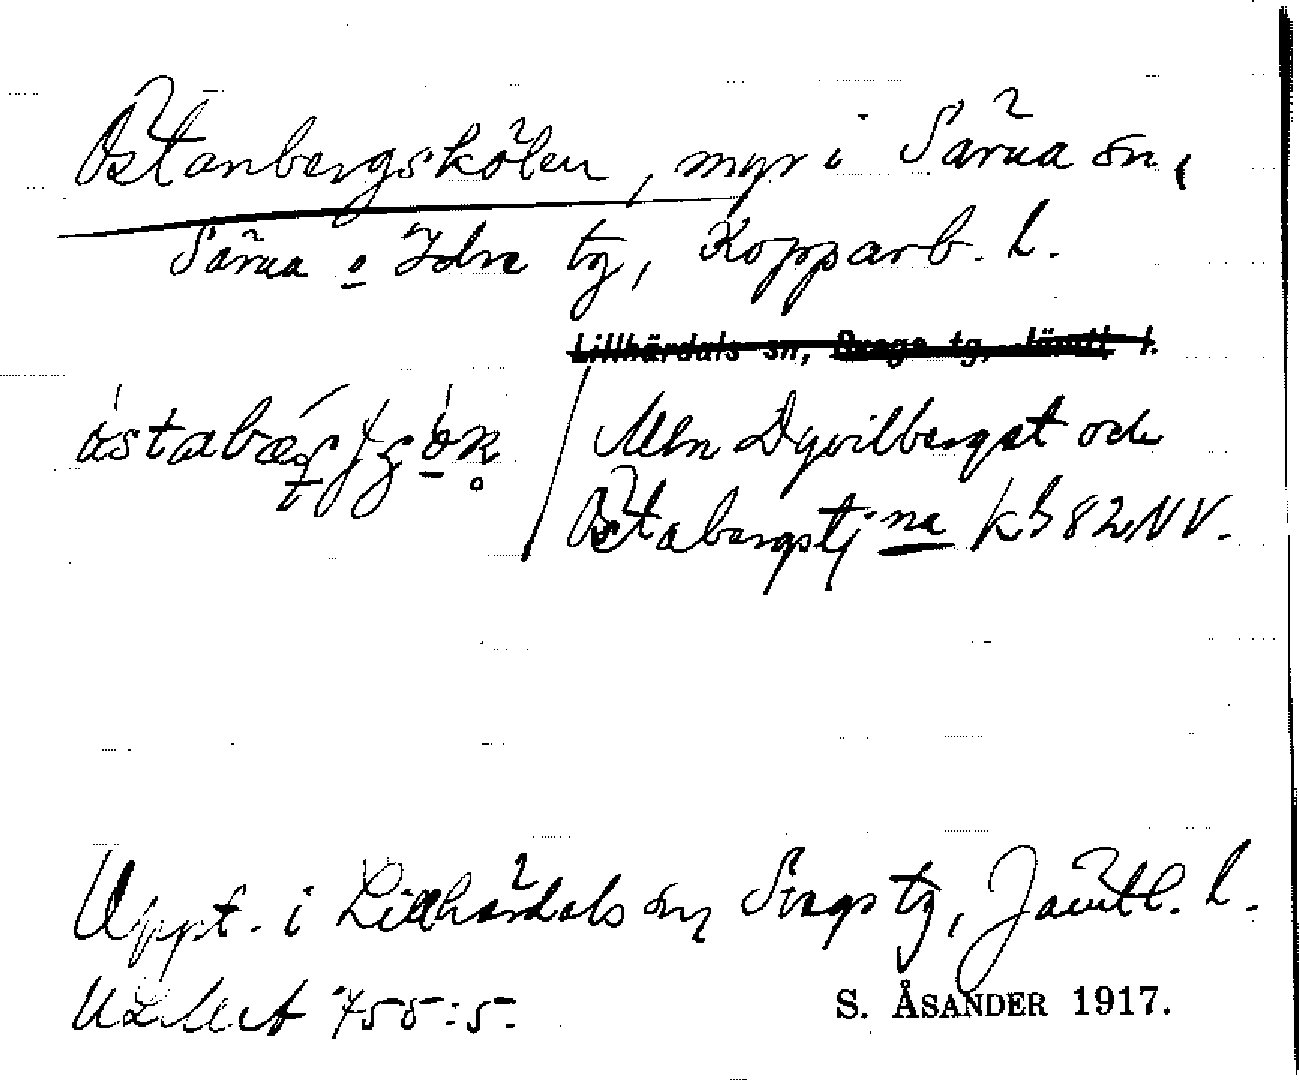 Östanbergskölen, myr i Särna sn,
Särna o Idre tg, Kopparb. l.
Lillhärdals sn, Svegs tg, Jämtl. l.
Mln Dyvilberget och
Östabergstj:na kb 82 NV.
Uppt. i Lillhärdals sn, Svegs tg, Jämtl. l.
ULMA 755:5.
S. ÅSANDER 1917.